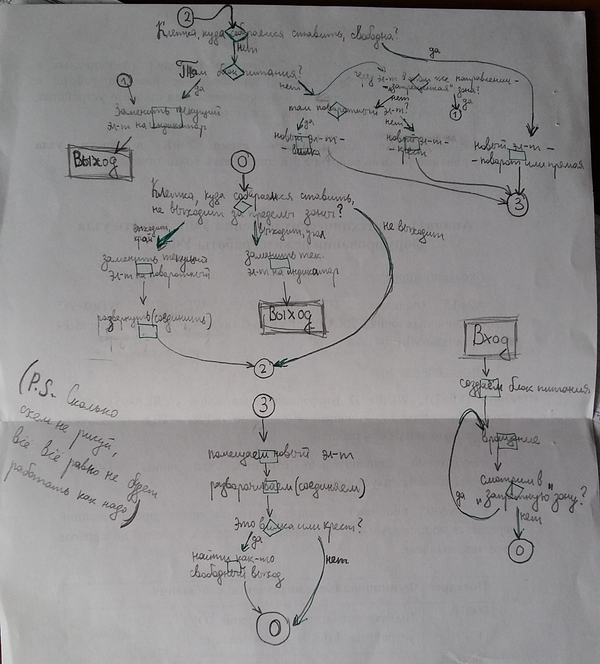 2
Клетка, куда собираемся ставить, свободна?
нет
да
Там блок питания?
да
нет
1
Заменить текущий
эл-т на индикатор
Выход
эл-т в том же направлении -
"запрещённая" зона?
да
нет
1
там поворотный эл-т?
да
нет
новый эл-т -
- вилка
новый эл-т -
- крест
новый эл-т -
- поворот или прямая
3
0'
Клетка, куда собираемся ставить,
не выходит за пределы зоны?
выходит,
выходит, угол
не выходит
заменить текущий
эл-т на поворотный
развернуть (соединить)
заменить тек.
эл-т на индикатор
Выход
2'
3'
помещаем новый эл-т
разворачиваем (соединяем)
Это вилка или крест?
да
нет
найти как-то
свободный выход
0
Вход
создаём блок питания
вращение
смотрим в
"запретную" зону?
да
нет
0
(P.S. Сколько
схем не рисуй,
всё всё равно не будет
работать как надо)